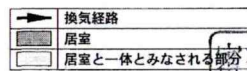 換気経路
居室
居室と一体とみなされる部分